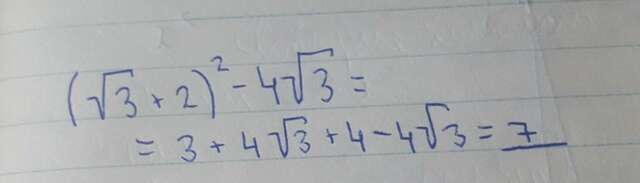 (√3 + 2)² - 4√3 =
= 3 + 4√3 + 4 - 4√3 = 7